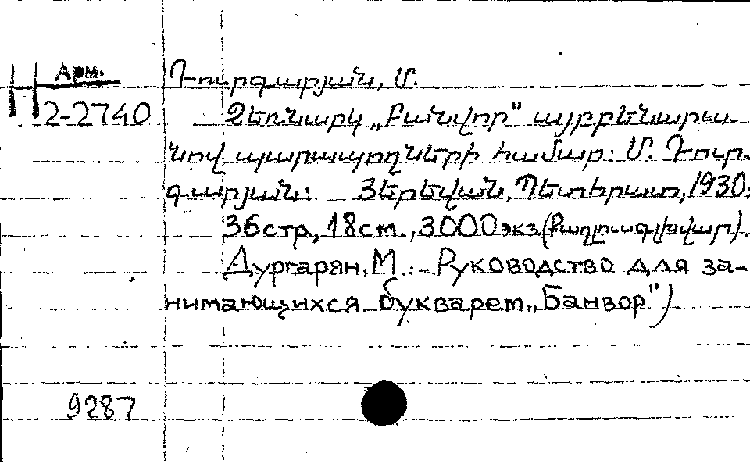 Арм.
H2-2740
Դուրգարյան, Մ.
Ձեռնարկ „Բանվոր" այբբենարա-
նով պարապողների համար: Մ. Դուր-
գարյան: Յերեվան, Պետհրատ, 1930:
36 стр, 18 см., 3000 экз
Дургарян, М. Руководство для за-
нимающихся букварем „Банвор")
9287